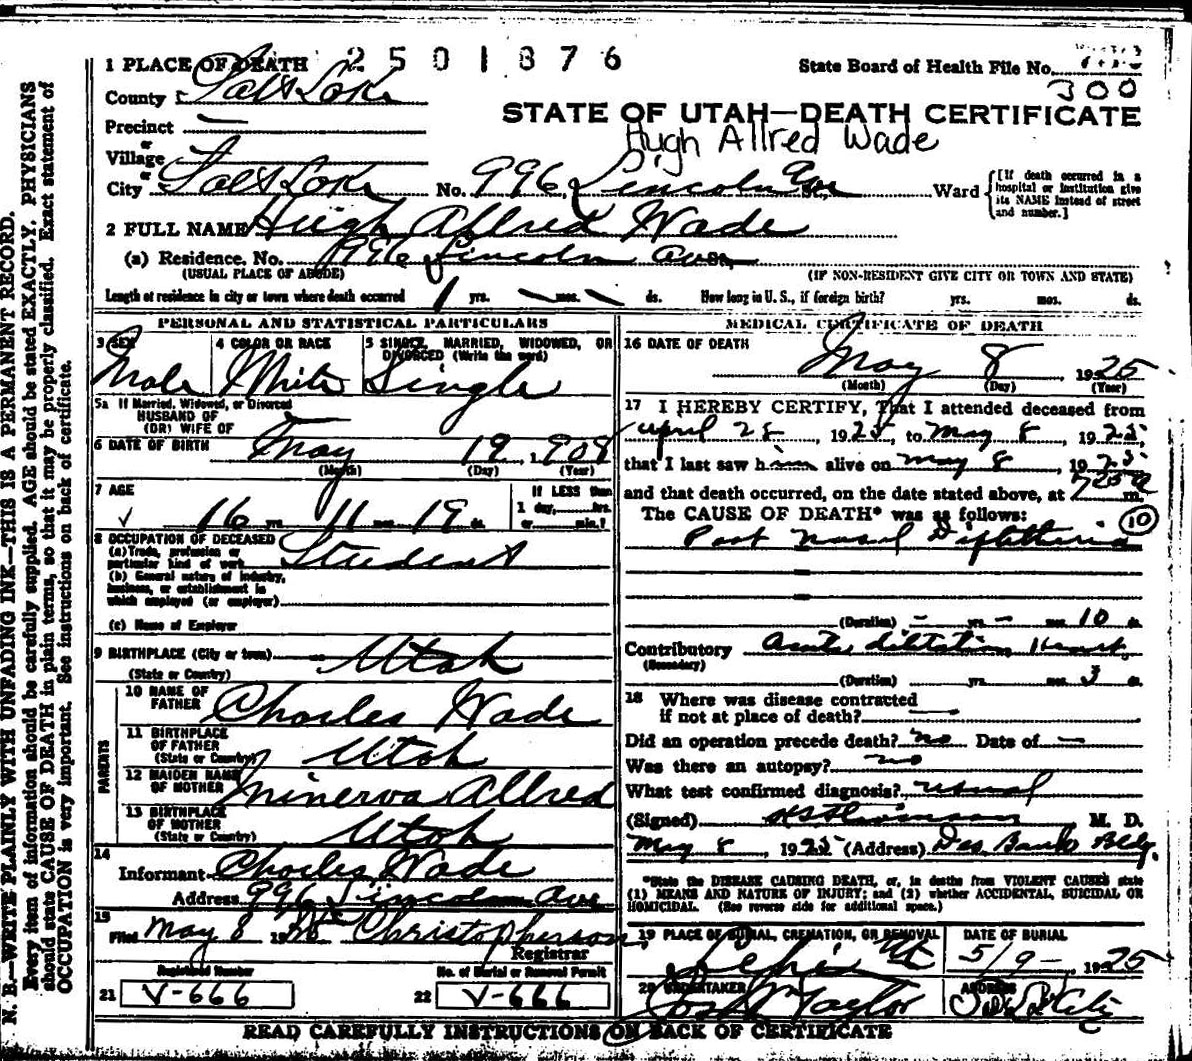 1 PLACE OF DEATH 2501876
State Board of Health File No.
300
County Salt Lake
STATE OF UTAH—DEATH CERTIFICATE
Precinct —
Hugh Allred Wade
or
Village
or
City Salt Lake No. 996 Lincoln Ave Ward
[If death occurred in a hospital or institution give its NAME instead of street and number.]
2 FULL NAME Hugh Allred Wade
(a) Residence, No. 996 Lincoln Ave.
(USUAL PLACE OF ABODE) (IF NON-RESIDENT GIVE CITY OR TOWN AND STATE)
Length of residence in city or town where death occurred 1 yrs. — mos. — ds. How long in U. S., if foreign birth? yrs. mos. ds.
PERSONAL AND STATISTICAL PARTICULARS
3 SEX 4 COLOR OR RACE 5 SINGLE, MARRIED, WIDOWED, OR DIVORCED (Write the word)
Male White Single
5a If Married, Widowed, or Divorced
HUSBAND OF
(OR) WIFE OF
6 DATE OF BIRTH May 19, 1908
(Month) (Day) (Year)
7 AGE If LESS than
1 day, hrs.
16 yrs. 11 mos. 19 ds. or min.?
8 OCCUPATION OF DECEASED
(a) Trade, profession or
particular kind of work Student
(b) General nature of industry,
business, or establishment in
which employed (or employer)
(c) Name of Employer
9 BIRTHPLACE (City or town) Utah
(State or Country)
PARENTS
10 NAME OF
FATHER Charles Wade
11 BIRTHPLACE
OF FATHER Utah
(State or Country)
12 MAIDEN NAME
OF MOTHER Minerva Allred
13 BIRTHPLACE
OF MOTHER Utah
(State or Country)
14
Informant Charles Wade
Address 996 Lincoln Ave
15
Filed May 8 19 Christopherson
Registrar
Registered Number No. of Burial or Removal Permit
21 V-666 22 V-666
MEDICAL CERTIFICATE OF DEATH
16 DATE OF DEATH
May 8, 1925
(Month) (Day) (Year)
17 I HEREBY CERTIFY, That I attended deceased from
April 28, 1925, to May 8, 1925,
that I last saw him alive on May 8, 1925
and that death occurred, on the date stated above, at m.
The CAUSE OF DEATH* was as follows: 10
Post Nasal Diphtheria
(Duration) — yrs. — mos. 10 ds.
Contributory Acute dilatation Heart
(Secondary)
(Duration) yrs. mos. 3 ds.
18 Where was disease contracted
if not at place of death? —
Did an operation precede death? no Date of —
Was there an autopsy? no
What test confirmed diagnosis? usual
(Signed) M. D.
May 8, 1925 (Address) Des. Bank Bldg.
*State the DISEASE CAUSING DEATH, or, in deaths from VIOLENT CAUSES state
(1) MEANS AND NATURE OF INJURY; and (2) whether ACCIDENTAL, SUICIDAL OR
HOMICIDAL. (See reverse side for additional space.)
19 PLACE OF BURIAL, CREMATION, OR REMOVAL DATE OF BURIAL
Lehi Ut 5/9-, 1925
20 UNDERTAKER ADDRESS
Jos Wm Taylor
READ CAREFULLY INSTRUCTIONS ON BACK OF CERTIFICATE
N. B.—WRITE PLAINLY WITH UNFADING INK—THIS IS A PERMANENT RECORD.
Every item of information should be carefully supplied. AGE should be stated EXACTLY. PHYSICIANS
should state CAUSE OF DEATH in plain terms, so that it may be properly classified. Exact statement of
OCCUPATION is very important. See instructions on back of certificate.